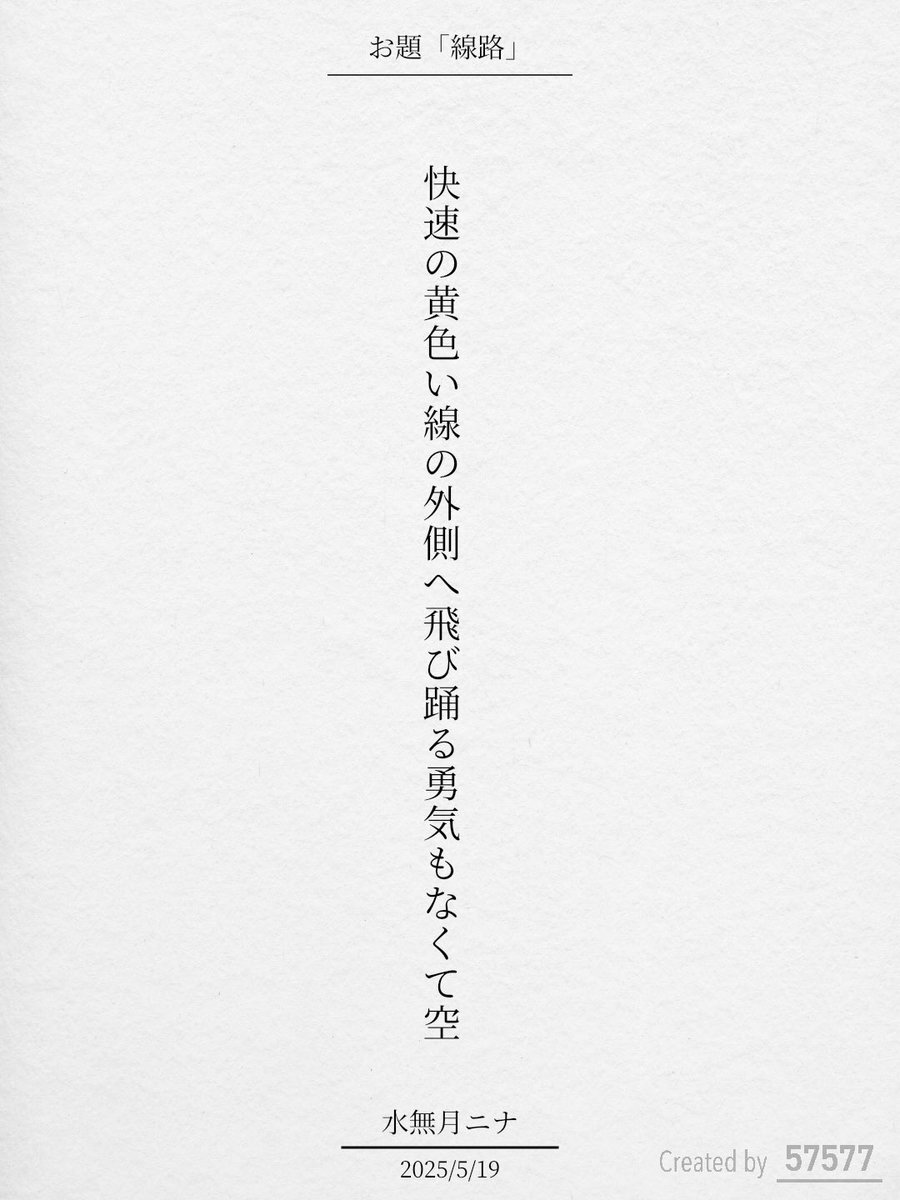 お題「線路」
快速の黄色い線の外側へ飛び踊る勇気もなくて空
水無月ニナ
2025/5/19
Created by 57577